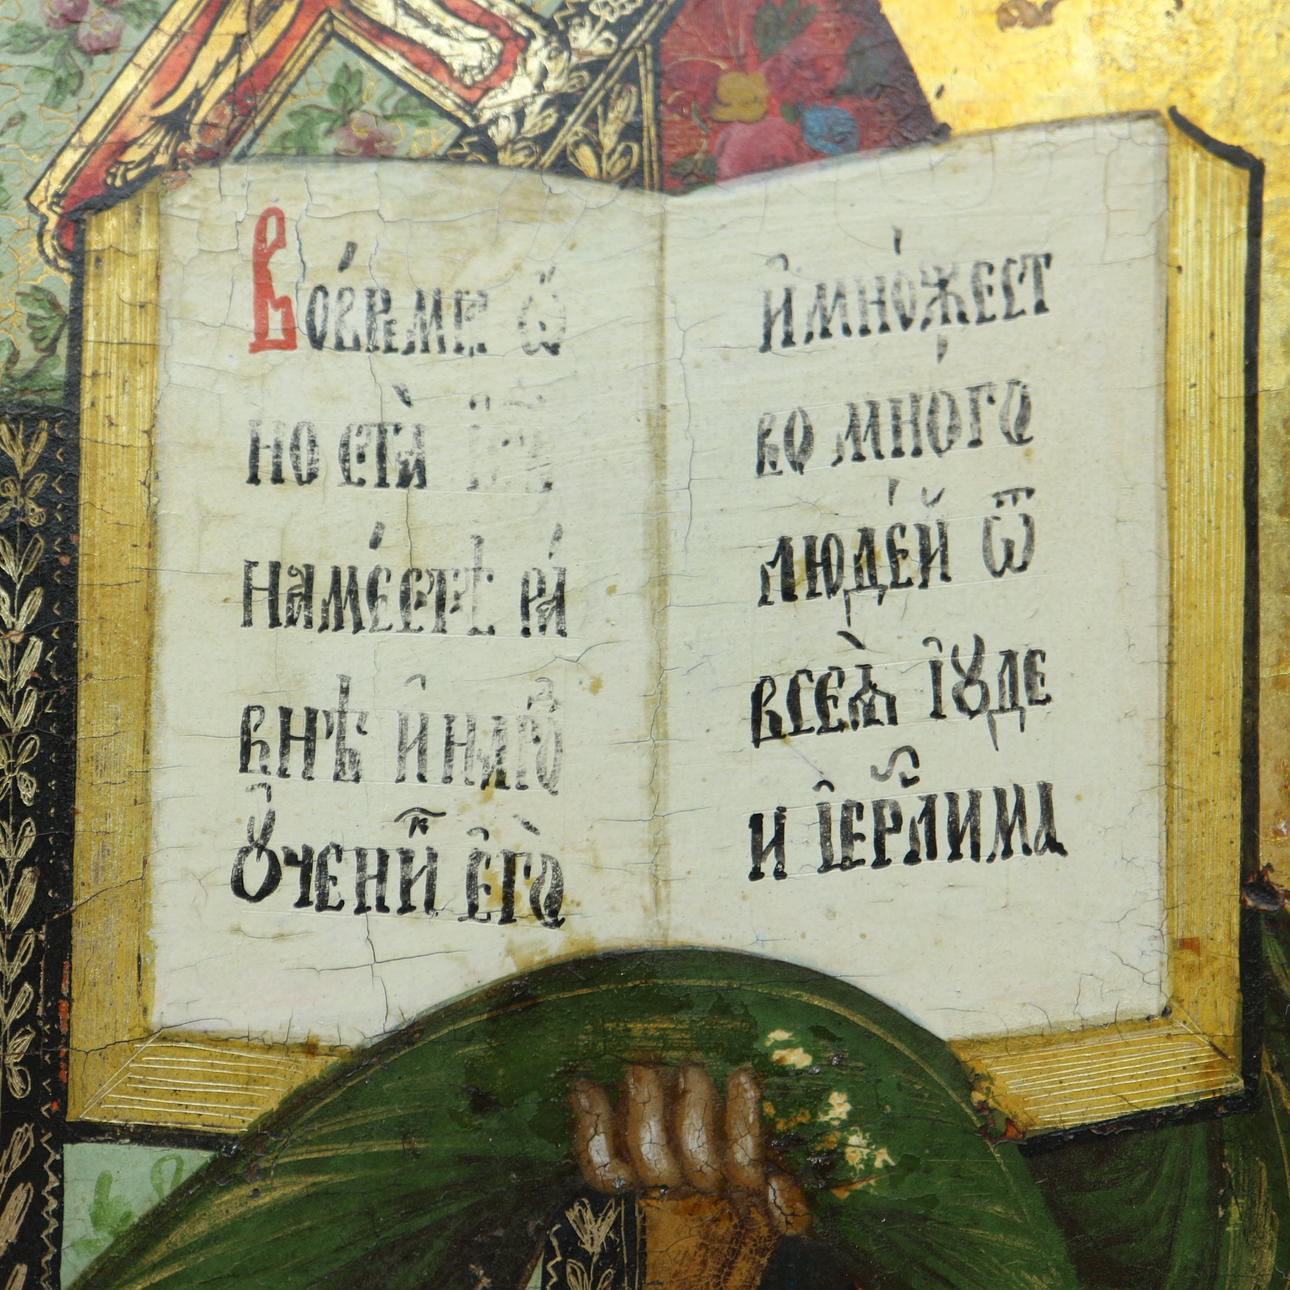 Вовре́мѧ ѻ̈
но ста̀ і҆с҃
намѣ́стѣ ра́
внѣ и҆ наро́
Ѹ҆чени҃к є҆гѡ̀
и҆мно́жест
во мно́гѡ
люде́й ѿ
всеѧ̀ і҆ꙋде
и і҆ер҃лима